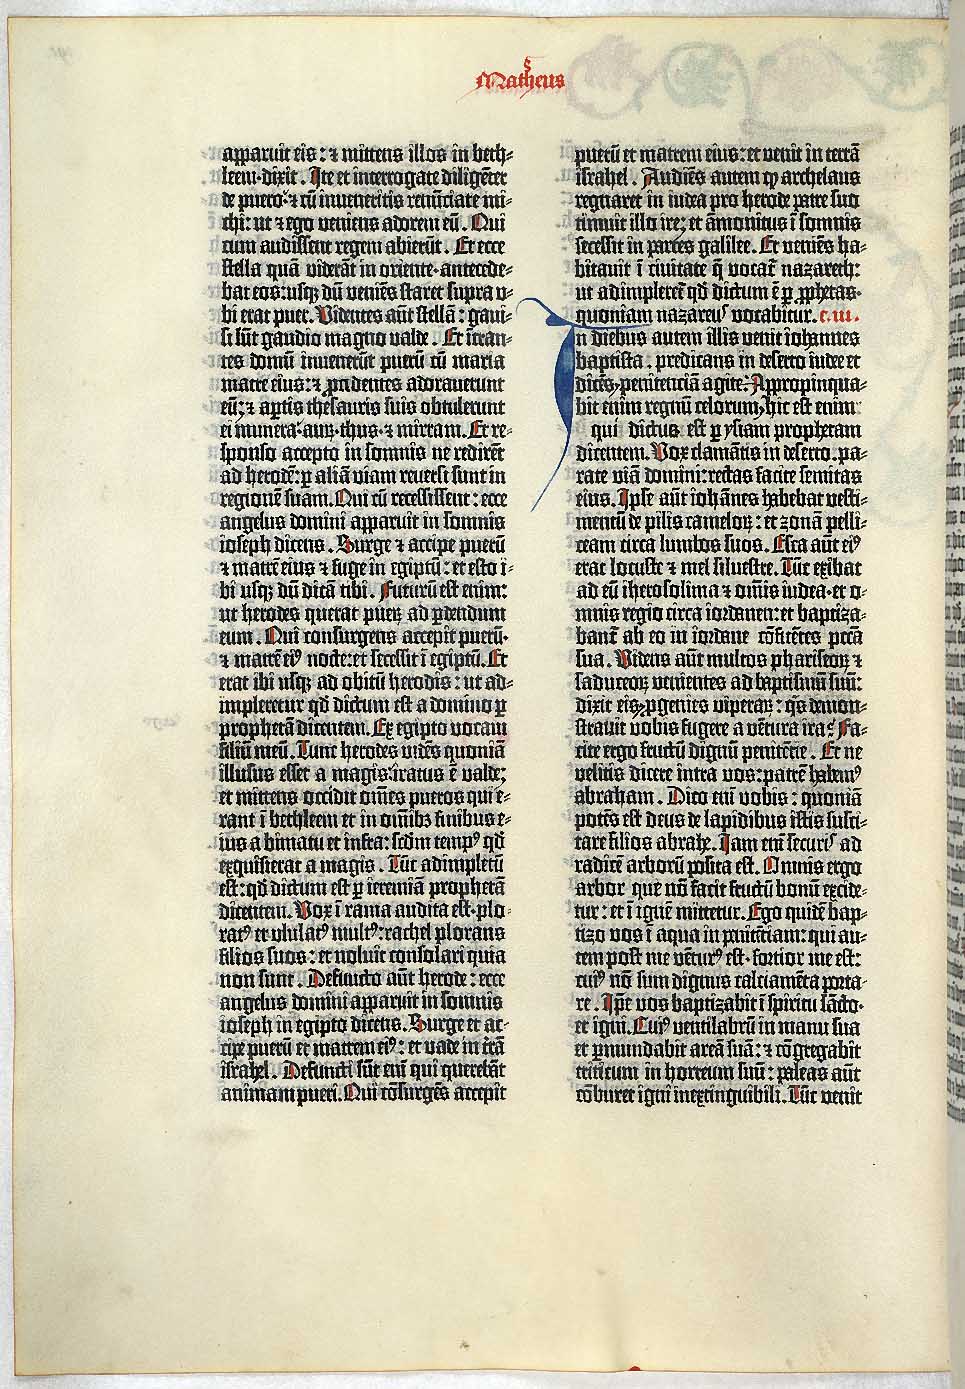 Matheus
apparuit eis: ⁊ mittens illos in beth-
leem·dixit. Ite et interrogate diligēter
de puero·⁊ cū inueneritis renūciate mi-
chi: ut ⁊ ego veniens adorem eū. Qui
cum audissent regem abierūt. Et ecce
stella quā viderāt in oriente·antecede-
bat eos: usqꝫ dū veniēs staret supra v-
bi erat puer. Videntes aūt stellā: gaui-
si sūt gaudio magno valde. Et ītran-
tes domū īvenerūt puerū cū maria
matre eius: ⁊ ꝓcidentes adorauerunt
eū: ⁊ aꝑtis thesauris suis obtulerunt
ei munera·auꝝ·thus·⁊ mirram. Et re-
sponso accepto in somnis ne redirēt
ad herodē: ꝑ aliā viam reuersi sunt in
regionē suam. Qui cū recessissent: ecce
angelus domini apparuit in somnis
ioseph dicens. Surge ⁊ accipe puerū
⁊ matrē eius ⁊ fuge in egiptū: et esto i-
bi usqꝫ dū dicā tibi. Futurū est enim:
ut herodes querat pueꝝ ad ꝑdendum
eum. Qui consurgens accepit puerū·
⁊ matrē eiꝰ nocte: et secessit ī egiptū. Et
erat ibi usqꝫ ad obitū herodis: ut ad-
impleretur qd̄ dictum est a domino ꝑ
prophetā dicentem. Ex egipto vocaui
filiū meū. Tunc herodes vidēs quoniā
illusus esset a magis: iratus ē valde:
et mittens occidit om̄es pueros qui e-
rant ī bethleem et in om̄ibꝫ finibus e-
ius a bimatu et infra: scd̄m tempꝰ qd̄
exquisierat a magis. Tūc adimpletū
est: qd̄ dictum est ꝑ ieremiā prophetā
dicentem. Vox ī rama audita est·plo-
ratꝰ et ululatꝰ multꝰ: rachel plorans
filios suos: et noluit consolari quia
non sunt. Defuncto aūt herode: ecce
angelus domini apparuit in somnis
ioseph in egipto dicens. Surge et ac-
cipe puerū et matrem eiꝰ: et vade in trā
israhel. Defuncti sūt eni qui querebāt
animam pueri. Qui cōsurgēs accepit
puerū et matrem eius: et venit in terrā
israhel. Audiēs autem ꝙ archelaus
regnaret in iudea pro herode patre suo
timuit illo ire: et āmonitus ī somnis
secessit in partes galilee. Et veniēs ha-
bitauit ī ciuitate q̄ vocat̄ nazareth:
ut adimpleret̄ qd̄ dictum ē ꝑ ꝓphetas·
quoniam nazareus vocabitur. c. iii.
In diebus autem illis venit iohannes
baptista·predicans in deserto iudee et
dicēs, penitenciā agite: Appropinqua-
bit enim regnū celorum, hic est enim
qui dictus est ꝑ ysaiam prophetam
dicentem. Vox clamātis in deserto. pa-
rate viā domini: rectas facite semitas
eius. Ipse aūt iohānes habebat vesti-
mentū de pilis cameloꝝ: et zonā pelli-
ceam circa lumbos suos. Esca aūt eiꝰ
erat locuste ⁊ mel siluestre. Tūc exibat
ad eū iherosolima ⁊ om̄is iudea·et o-
mnis regio circa iordanen: et baptiza-
bant̄ ab eo in iordane cōfitētes pccā
sua. Videns aūt multos phariseoꝝ ⁊
saduceoꝝ venientes ad baptismū suū:
dixit eis, ꝓgenies viperaꝝ: qs demon-
strauit vobis fugere a vētura ira: Fa-
cite ergo fructū dignū penitētie. Et ne
velitis dicere intra vos: patrē habemꝰ
abraham. Dico eni vobis: quoniā
potēs est deus de lapidibus istis susci-
tare filios abrahe. Iam eni securis ad
radicē arborū posita est. Omnis ergo
arbor que nō facit fructū bonū excide-
tur: et ī ignē mittetur. Ego quidē bap-
tizo vos ī aqua in pnitētiam: qui au-
tem post me vēturꝰ est·fortior me est:
cuiꝰ nō sum dignus calciamēta porta-
re. Ipē vos baptizabit ī spiritu sācto·
et igni. Cuiꝰ ventilabrū in manu sua
et ꝑmundabit areā suā: ⁊ cōgregabit
triticum in horreum suū: paleas aūt
cōburet igni inextinguibili. Tūc venit